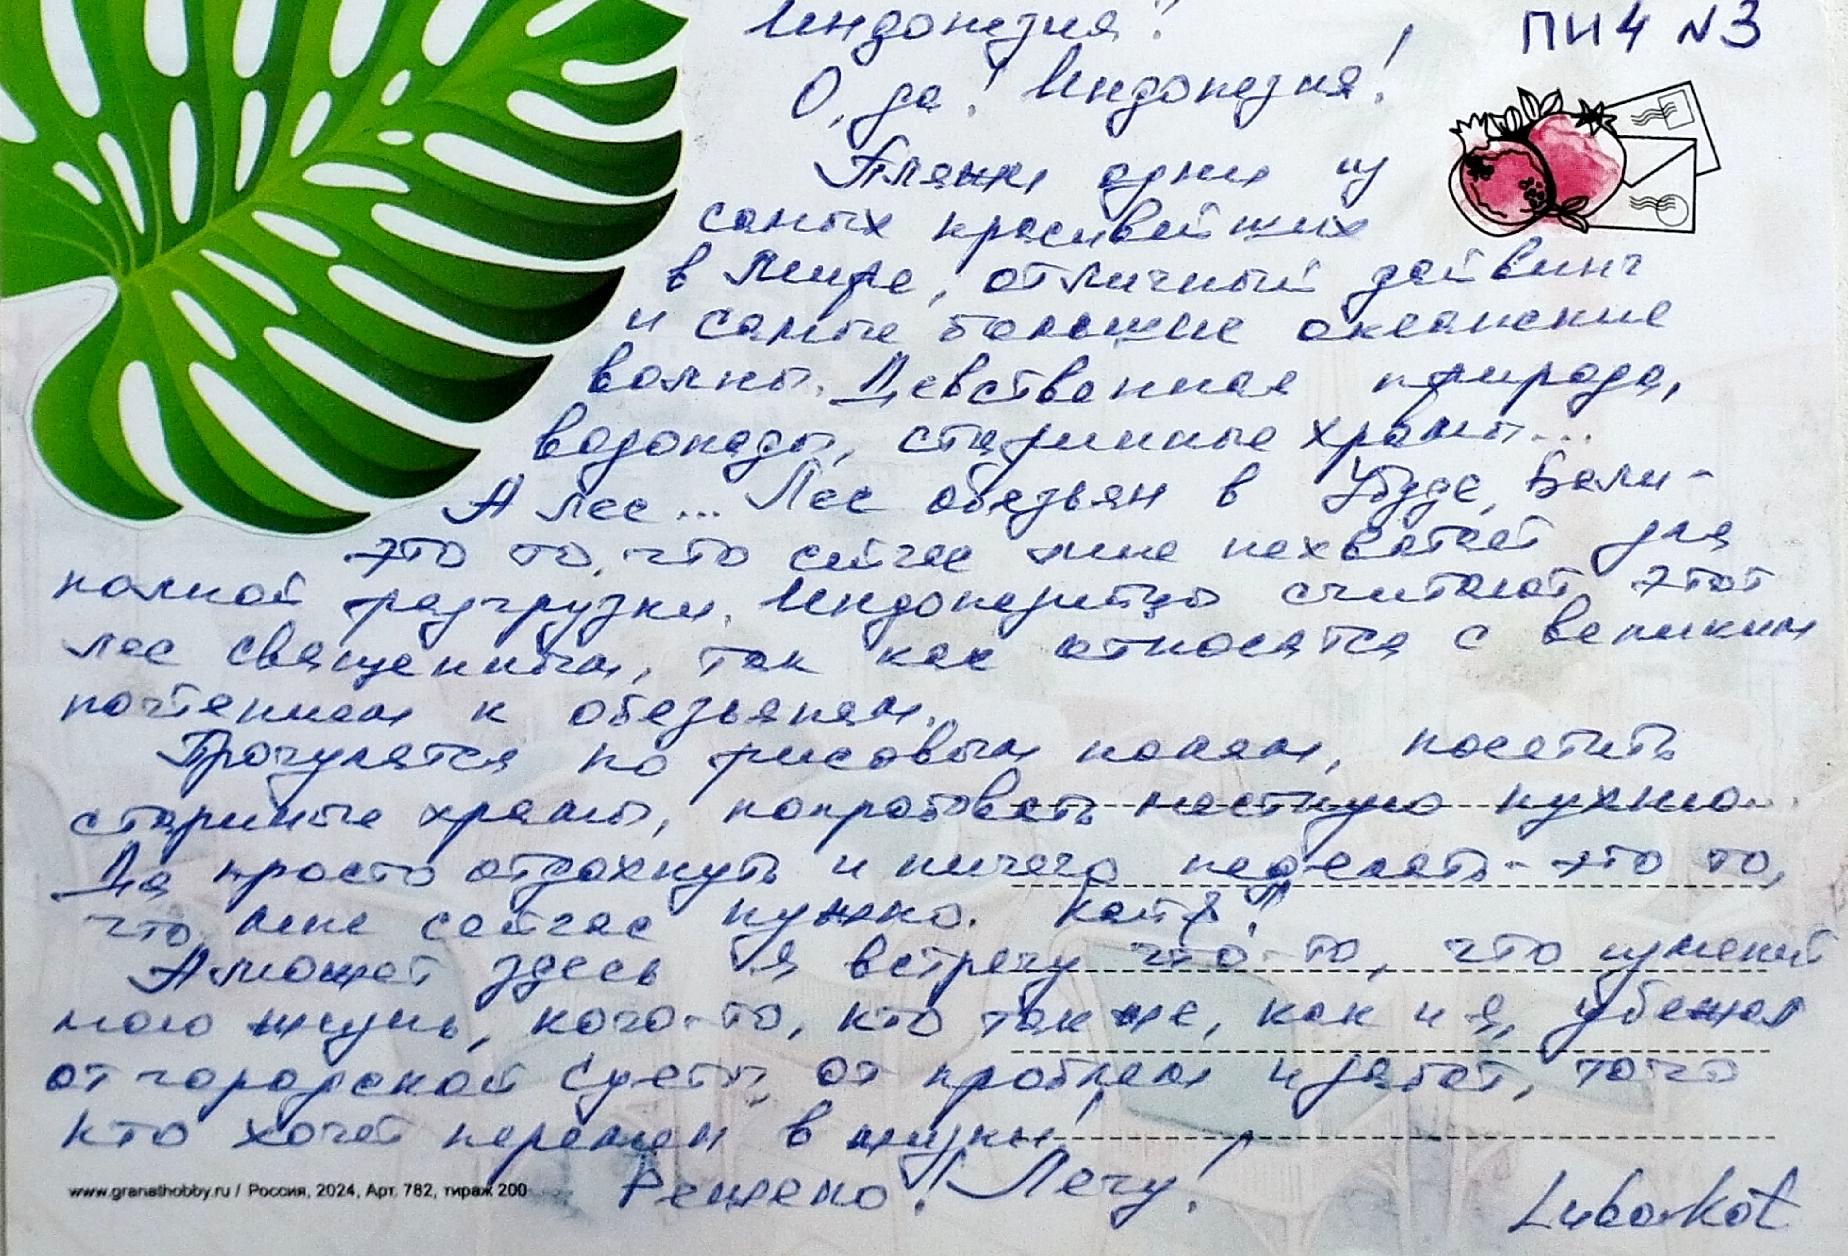 Индонезия?
ПИ4 №3
О, да! Индонезия!
Пляжи одни из
самых красивейших
в мире, отличный дайвинг
и самые большие океанские
волны. Девственная природа,
водопады, старинные храмы...
А лес... Лес обезьян в Убуде, Бали-
это то, что сейчас мне нехватает для
полной разгрузки. Индонезийцы считают этот
лес священным, так как относятся с великим
почтением к обезьянам.
Прогулятся по рисовым полям, посетить
старинные храмы, попробовать местную кухню...
Да просто отдохнуть и ничего неделать - это то,
что мне сейчас нужно. Кайф!
А может здесь я встречу что-то, что изменит
мою жизнь, кого-то, кто так же, как и я, убежал
от городской суеты, от проблем и забот, того
кто хочет перемен в жизни!
Решено! Лечу!
www.granathobby.ru / Россия, 2024, Арт. 782, тираж 200
Lubakot